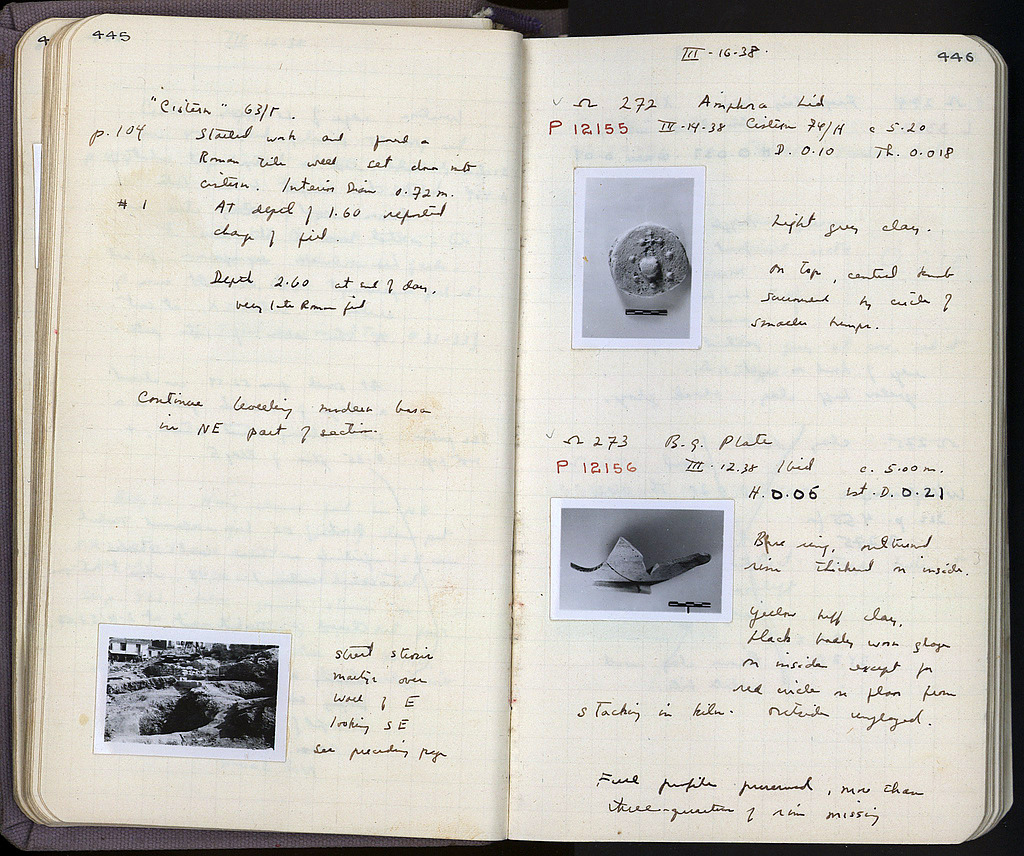 445
"Cistern" 63/Γ.
p. 104 Started work and found a
Roman tile well set down into
cistern. Interior Diam 0.72 m.
# 1 At depth of 1.60 reported
change of fill.
Depth 2.60 at end of day.
very late Roman fill
Continue levelling modern
in NE part of section.
street strosis
over
wall of E
looking SE
see preceding page
III-16-38.
446
272 Amphora Lid
P 12155 III-14-38 Cistern 74/H c 5.20
D. 0.10 Th. 0.018
Light grey clay.
On top, central knob
surround by circle of
smaller bumps.
273 B.g. Plate
P 12156 III-12.38 Ibid c. 5.00 m.
H. 0.06 est. D. 0.21
Base ring, outturned
rim thickened on inside.
Yellow buff clay,
black badly worn glaze
on inside except for
red circle on floor from
stacking in kiln. Outside unglazed.
Full profile preserved, more than
three-quarters of rim missing